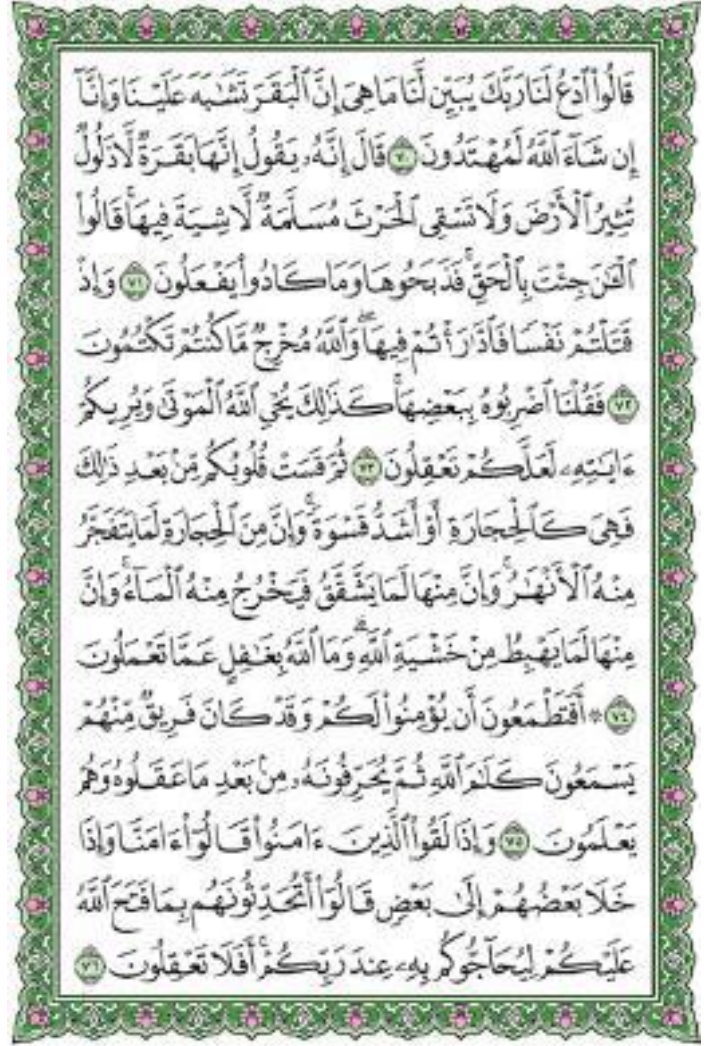 قَالُوا۟ ٱدْعُ لَنَا رَبَّكَ يُبَيِّن لَّنَا مَا هِىَ إِنَّ ٱلْبَقَرَ تَشَٰبَهَ عَلَيْنَا وَإِنَّآ
إِن شَآءَ ٱللَّهُ لَمُهْتَدُونَ ٧٠ قَالَ إِنَّهُۥ يَقُولُ إِنَّهَا بَقَرَةٌ لَّا ذَلُولٌ
تُثِيرُ ٱلْأَرْضَ وَلَا تَسْقِى ٱلْحَرْثَ مُسَلَّمَةٌ لَّا شِيَةَ فِيهَا ۚ قَالُوا۟
ٱلْـَٰٔنَ جِئْتَ بِٱلْحَقِّ ۚ فَذَبَحُوهَا وَمَا كَادُوا۟ يَفْعَلُونَ ٧١ وَإِذْ
قَتَلْتُمْ نَفْسًا فَٱدَّٰرَْٰٔتُمْ فِيهَا ۖ وَٱللَّهُ مُخْرِجٌ مَّا كُنتُمْ تَكْتُمُونَ
٧٢ فَقُلْنَا ٱضْرِبُوهُ بِبَعْضِهَا ۚ كَذَٰلِكَ يُحْىِ ٱللَّهُ ٱلْمَوْتَىٰ وَيُرِيكُمْ
ءَايَٰتِهِۦ لَعَلَّكُمْ تَعْقِلُونَ ٧٣ ثُمَّ قَسَتْ قُلُوبُكُم مِّنۢ بَعْدِ ذَٰلِكَ
فَهِىَ كَٱلْحِجَارَةِ أَوْ أَشَدُّ قَسْوَةً ۚ وَإِنَّ مِنَ ٱلْحِجَارَةِ لَمَا يَتَفَجَّرُ
مِنْهُ ٱلْأَنْهَٰرُ ۚ وَإِنَّ مِنْهَا لَمَا يَشَّقَّقُ فَيَخْرُجُ مِنْهُ ٱلْمَآءُ ۚ وَإِنَّ
مِنْهَا لَمَا يَهْبِطُ مِنْ خَشْيَةِ ٱللَّهِ ۗ وَمَا ٱللَّهُ بِغَٰفِلٍ عَمَّا تَعْمَلُونَ
٧٤ ۞ أَفَتَطْمَعُونَ أَن يُؤْمِنُوا۟ لَكُمْ وَقَدْ كَانَ فَرِيقٌ مِّنْهُمْ
يَسْمَعُونَ كَلَٰمَ ٱللَّهِ ثُمَّ يُحَرِّفُونَهُۥ مِنۢ بَعْدِ مَا عَقَلُوهُ وَهُمْ
يَعْلَمُونَ ٧٥ وَإِذَا لَقُوا۟ ٱلَّذِينَ ءَامَنُوا۟ قَالُوٓا۟ ءَامَنَّا وَإِذَا
خَلَا بَعْضُهُمْ إِلَىٰ بَعْضٍ قَالُوٓا۟ أَتُحَدِّثُونَهُم بِمَا فَتَحَ ٱللَّهُ
عَلَيْكُمْ لِيُحَآجُّوكُم بِهِۦ عِندَ رَبِّكُمْ ۚ أَفَلَا تَعْقِلُونَ ٧٦